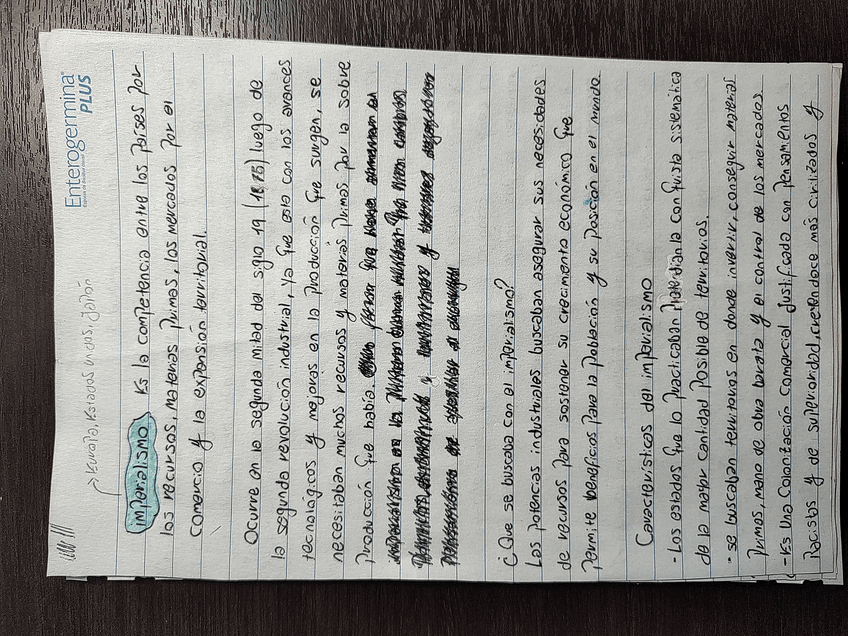 Enterogermina
PLUS
Europa, Estados unidos, Japón
imperialismo Es la competencia entre los Países por
los recursos, materias primas, los mercados por el
comercio y la expansión territorial.
Ocurre en la segunda mitad del siglo 19 (1875) luego de
la segunda revolución industrial, ya que esta con los avances
tecnológicos y mejoras en la producción que surgen, se
necesitaban muchos recursos y materias primas por la sobre
Producción que había.
¿Que se buscaba con el imperialismo?
Las potencias industriales buscaban asegurar sus necesidades
de recursos para sostener su crecimiento económico que
permite beneficios para la población y su posición en el mundo
Características del imperialismo
- Los estados que lo practicaban pretendían la conquista sistemática
de la mayor cantidad posible de territorios.
- se buscaban territorios en donde invertir, conseguir material
primas, mano de obra barata y el control de los mercados.
- Es una Colonización Comercial justificada con pensamientos
racistas y de superioridad, creyendoce más civilizados y